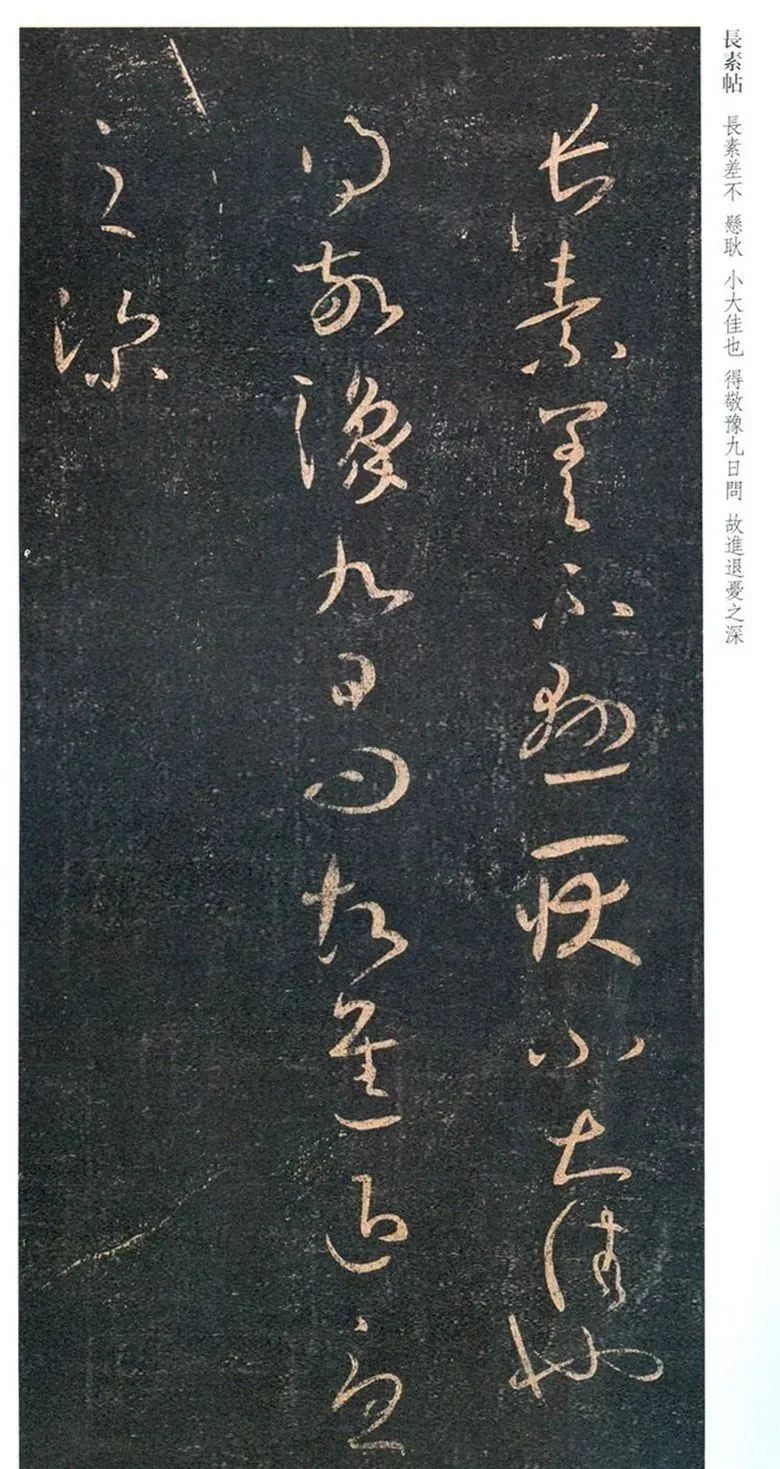 長素帖 長素差不 懸耿 小大佳也 得敬豫九日問 故進退憂之深
長素差不懸耿小大佳也
得敬豫九日問故進退憂
之深